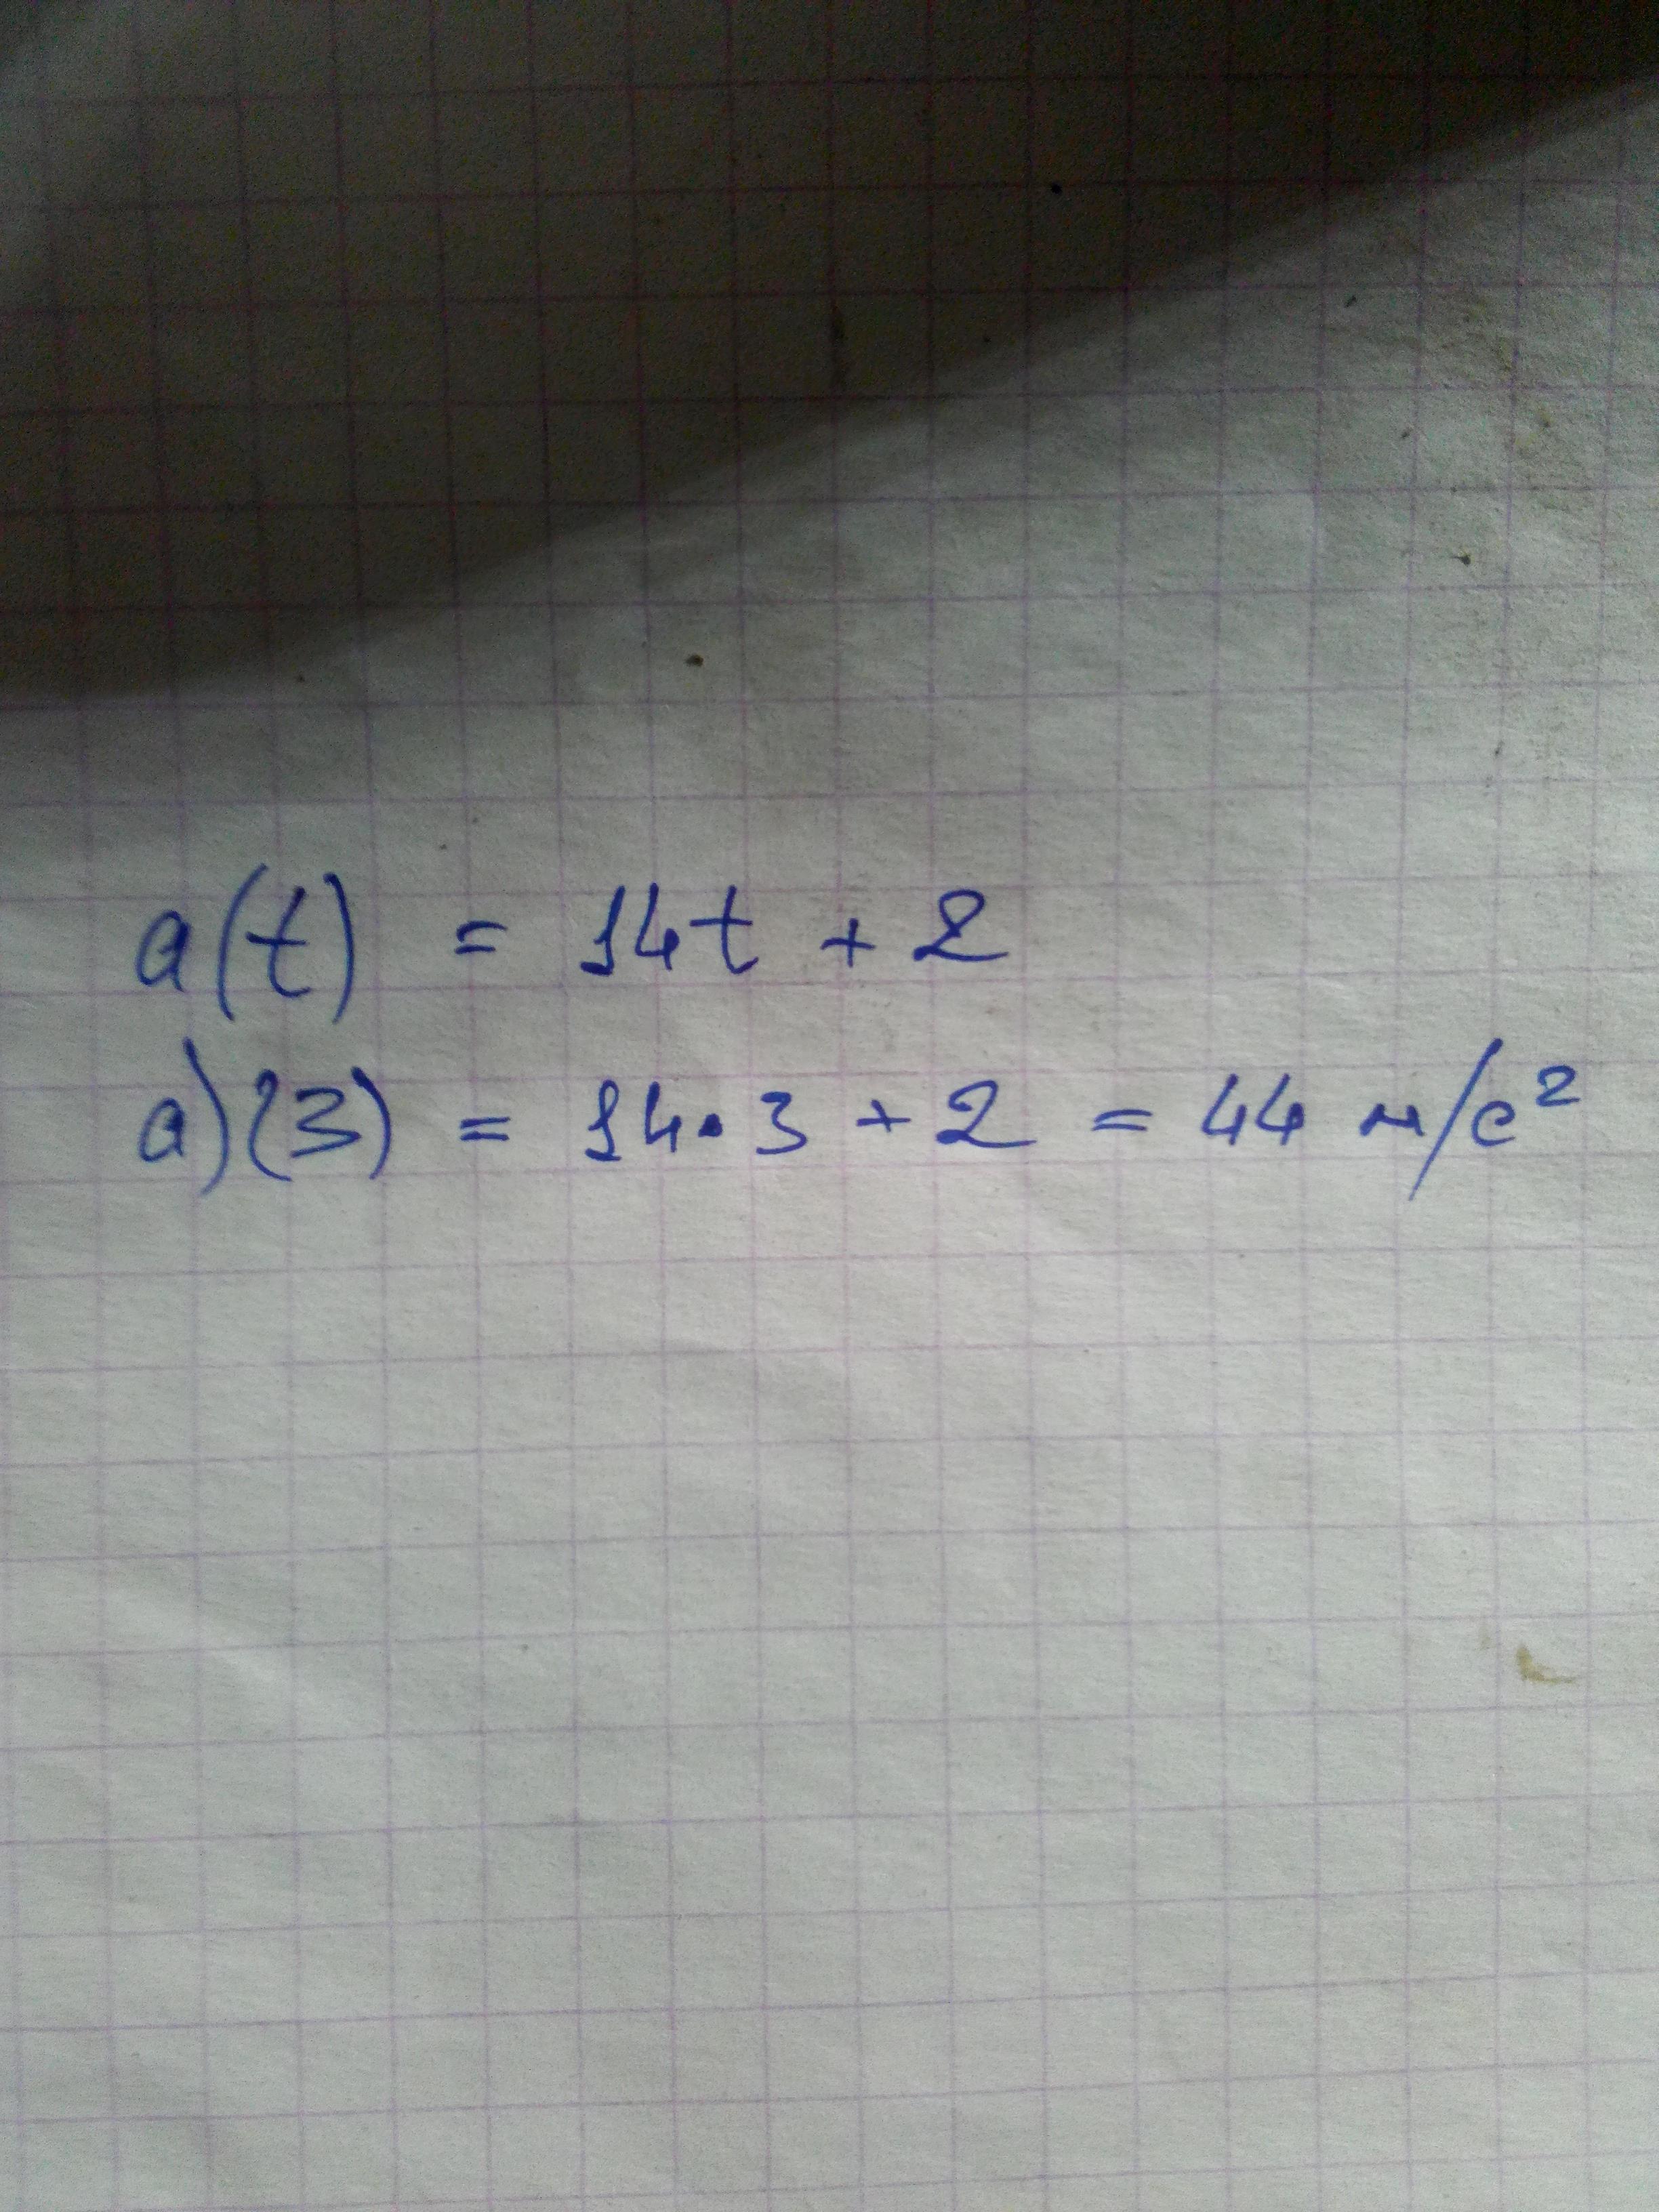 a(t) = 14t + 2
a)(3) = 14·3 + 2 = 44 м/с²